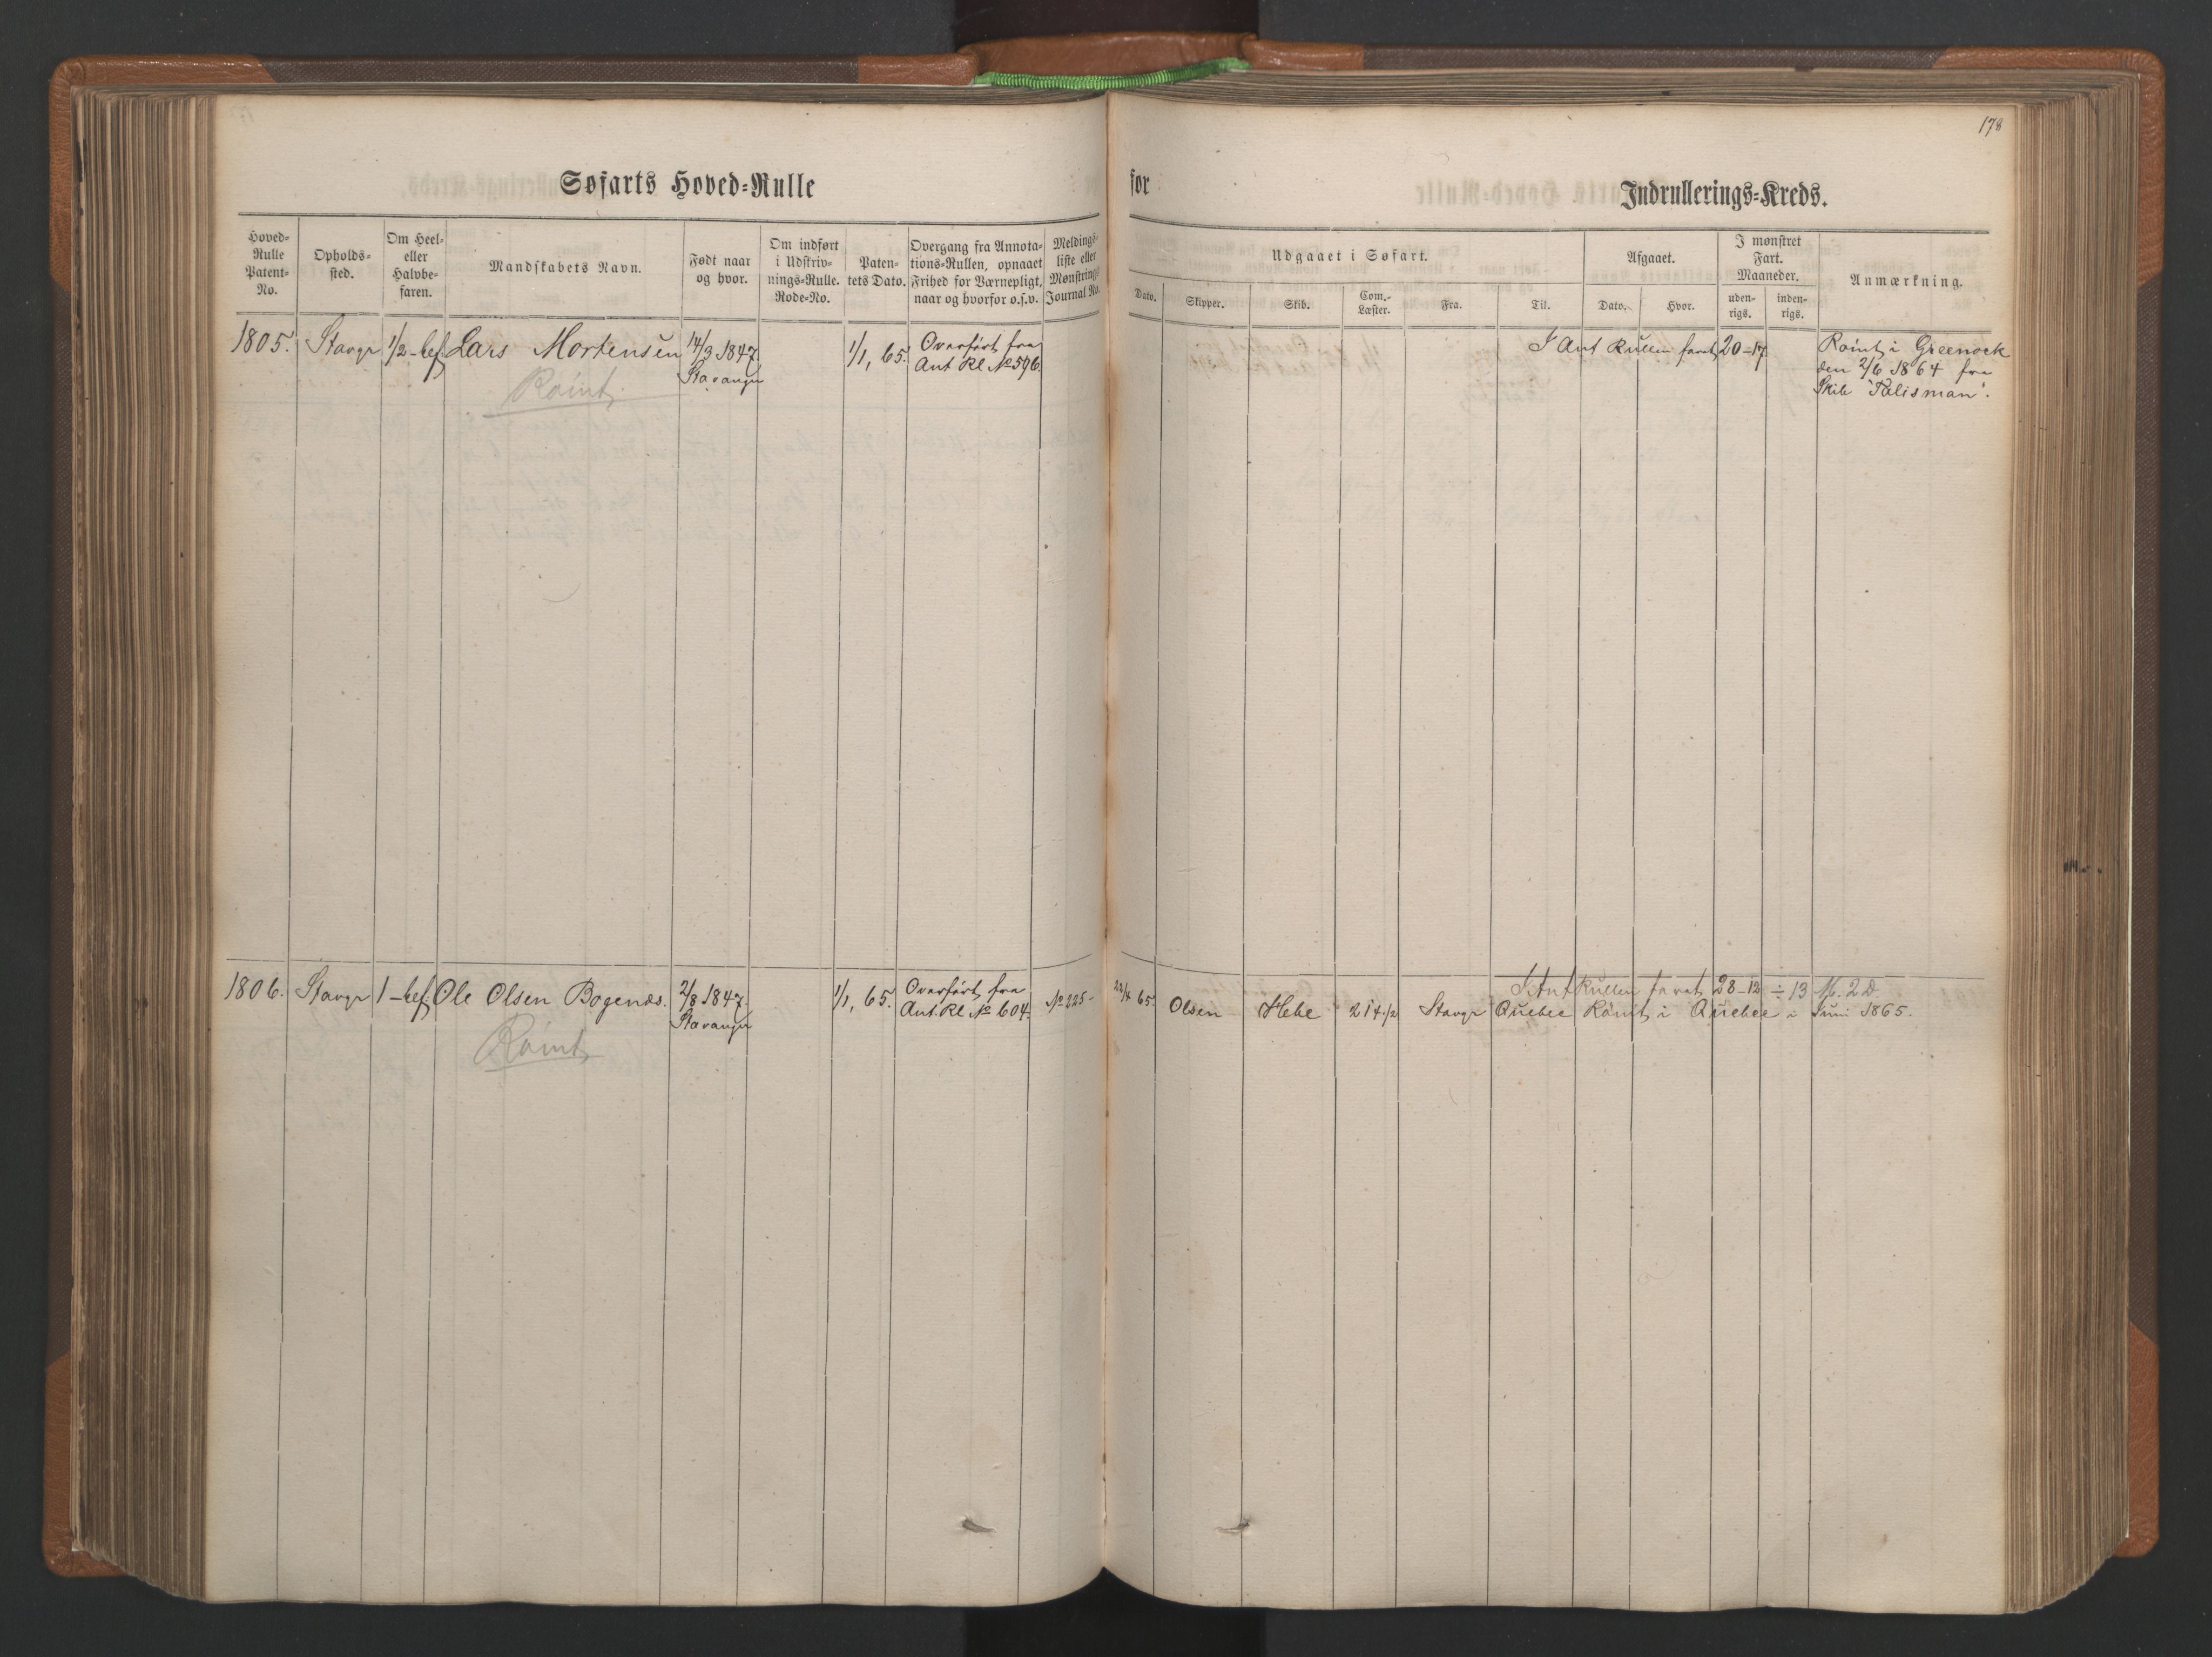 178
Søfarts Hoved-Rulle
for
Indrullerings-Kreds.
Hoved-
Rulle
Patent-
No.
Opholds-
sted.
Om Heel-
eller
Halvbe-
faren.
Mandskabets Navn.
Født naar
og hvor.
Om indført
i Udskriv-
nings-Rulle.
Rode-No.
Paten-
tets Dato.
Overgang fra Annota-
tions-Rullen, opnaaet
Frihed for Værnepligt,
naar og hvorfor o.s.v.
Meldings-
liste eller
Mønstrings
Journal No.
Udgaaet i Søfart.
Dato.
Skipper.
Skib.
Com.-
Læster.
Fra.
Til.
Afgaaet.
Dato.
Hvor.
I mønstret
Fart.
Maaneder.
uden-
rigs.
inden-
rigs.
Anmærkning.
1805. Stavgr 1/2-bef. Lars Mortensen 14/3 1847. 1/1, 65. Overført fra
Stavanger Ant Rl № 596.
Rømt.
I Ant Rullen faret 20-17
Rømt i Greenock
den 2/6 1864 fra
Skib "Talisman".
1806. Stavgr 1-bef. Ole Olsen Bogenæs. 2/8 1847. 1/1, 65. Overført fra № 225-
Stavanger Ant. Rl № 604.
Rømt
I Ant Rullen faret 28-12 ÷ 13 M. 2 D
22/4 65. Olsen Hebe 214 1/2 Stavgr Quebec Rømt i Quebec i Juni 1865.